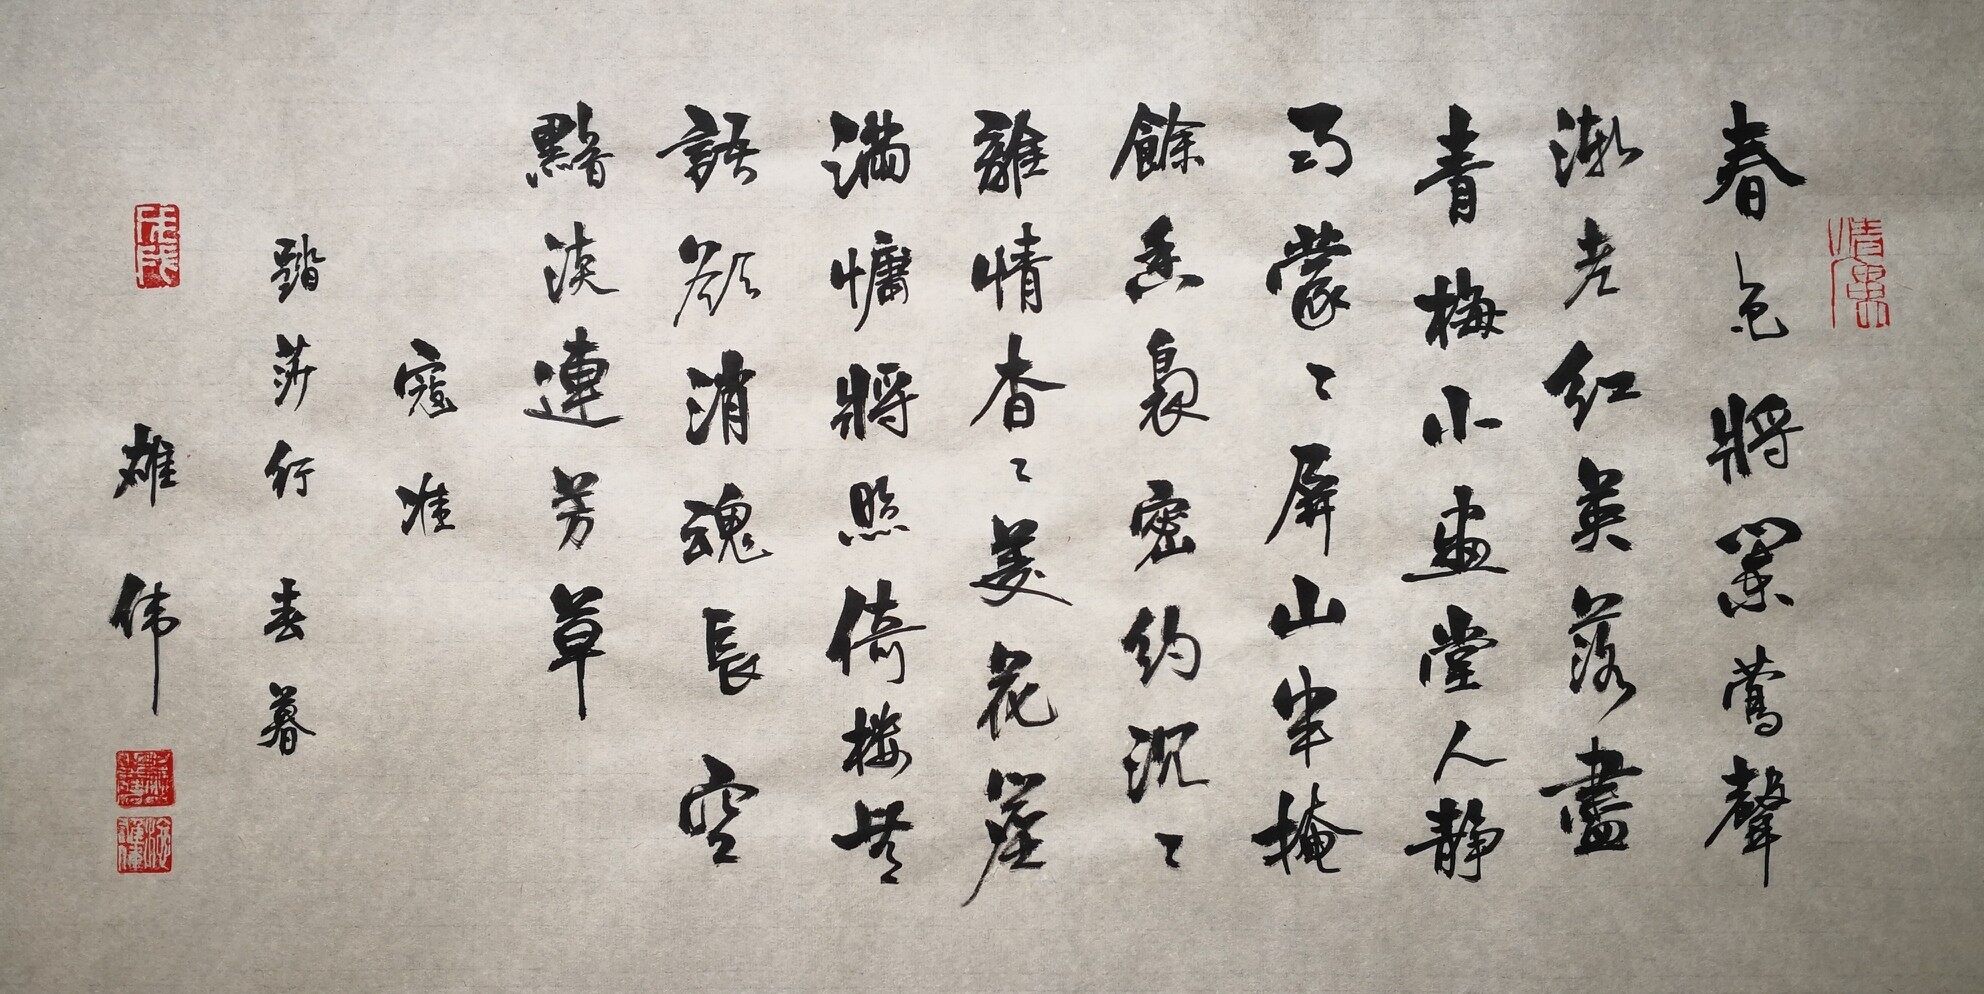 春色將闌鶯聲
漸老红英落盡
青梅小畫堂人静
雨蒙〻屏山半掩
餘香裊密約沉〻
離情杳〻菱花塵
滿慵將照倚楼無
語欲消魂長空
黯淡連芳草
寇准
踏莎行春暮
戊戌
雄伟